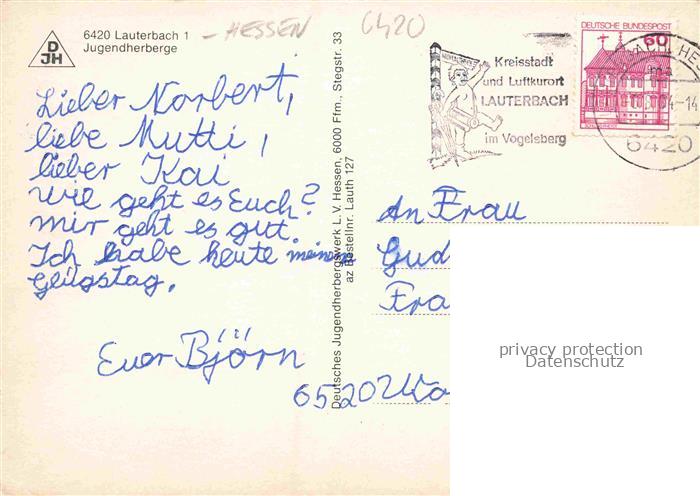 DJH
6420 Lauterbach 1
Jugendherberge
- HESSEN
6420
Kreisstadt
und Luftkurort
LAUTERBACH
im Vogelsberg
DEUTSCHE BUNDESPOST
60
6420
Lieber Norbert,
liebe Mutti,
lieber Kai
wie geht es Euch?
mir geht es gut.
Ich habe heute meinen
Geugstag.
Euer Björn
Deutsches Jugendherbergswerk L. V. Hessen, 6000 Ffm., Stegstr. 33
az Bestellnr. Lauth 127
An Frau
Gud
Fra
6520 Wo
privacy protection
Datenschutz